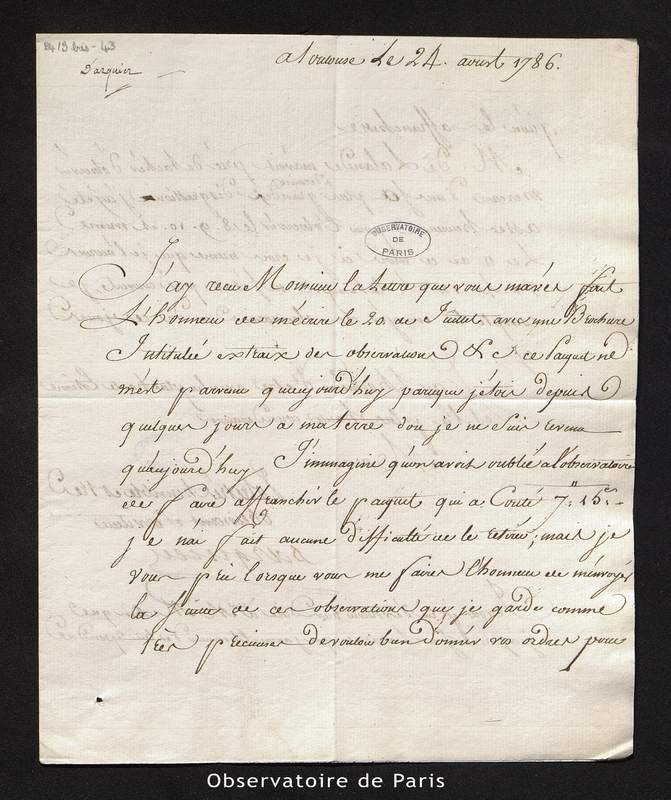 B4 19 bis - 43
Darquier
a Toulouse Le 24. aoust 1786.
OBSERVATOIRE
DE
PARIS
J'ay reçu Monsieur la Lettre que vous m'avés fait
L'honneur de m'écrire le 20 de Juillet avec une Brochure
Intitulée extraix des observations &c. ce Paquet ne
m'est parvenu qu'aujourd'huy parceque j'étois depuis
quelques jours a ma terre d'ou je ne suis revenu
qu'aujourd'huy J'immagine qu'on avoit oublié a l'observatoire
de faire affranchir le paquet qui a Couté 7.tt 15.s
je n'ai fait aucune difficulté de le retirer, mais je
vous prie lorsque vous me faires l'honneur de m'envoyer
la Suite de ces observations que je garde comme
tres precieuses de vouloir bien donner vos ordres pour
Observatoire de Paris